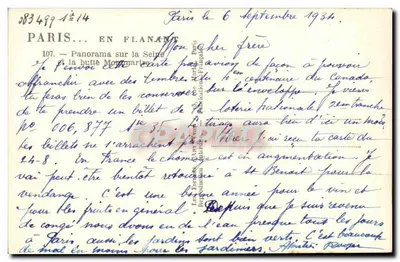 283499 Sé 14
Paris le 6 septembre 1934
PARIS... EN FLANANT
Mon cher frère
107. - Panorama sur la Seine
et la butte Montmartre
Je t'envoi cette carte par avion de façon à pouvoir
affranchir avec des timbres du 4em centenaire du Canada
tu feras bien de les conserver sur l'enveloppe. Je viens
de te prendre un billet de la loterie nationale 2em tranche
No 006,877 le tirage aura lieu d'ici un mois
les billets ne s'arrachent plus. Hier j'ai reçu ta carte du
24-8. En France le chomage est en augmentation. Je
vais peut être bientôt retourner à St Benoit pour la
vendange. C'est une bonne année pour le vin et
pour les fruits en général. Depuis que je suis revenu
de congé nous avons eu de l'eau presque tous les jours
à Paris, aussi les jardins sont bien verts. C'est beaucoup
de mal en moins pour les jardiniers.